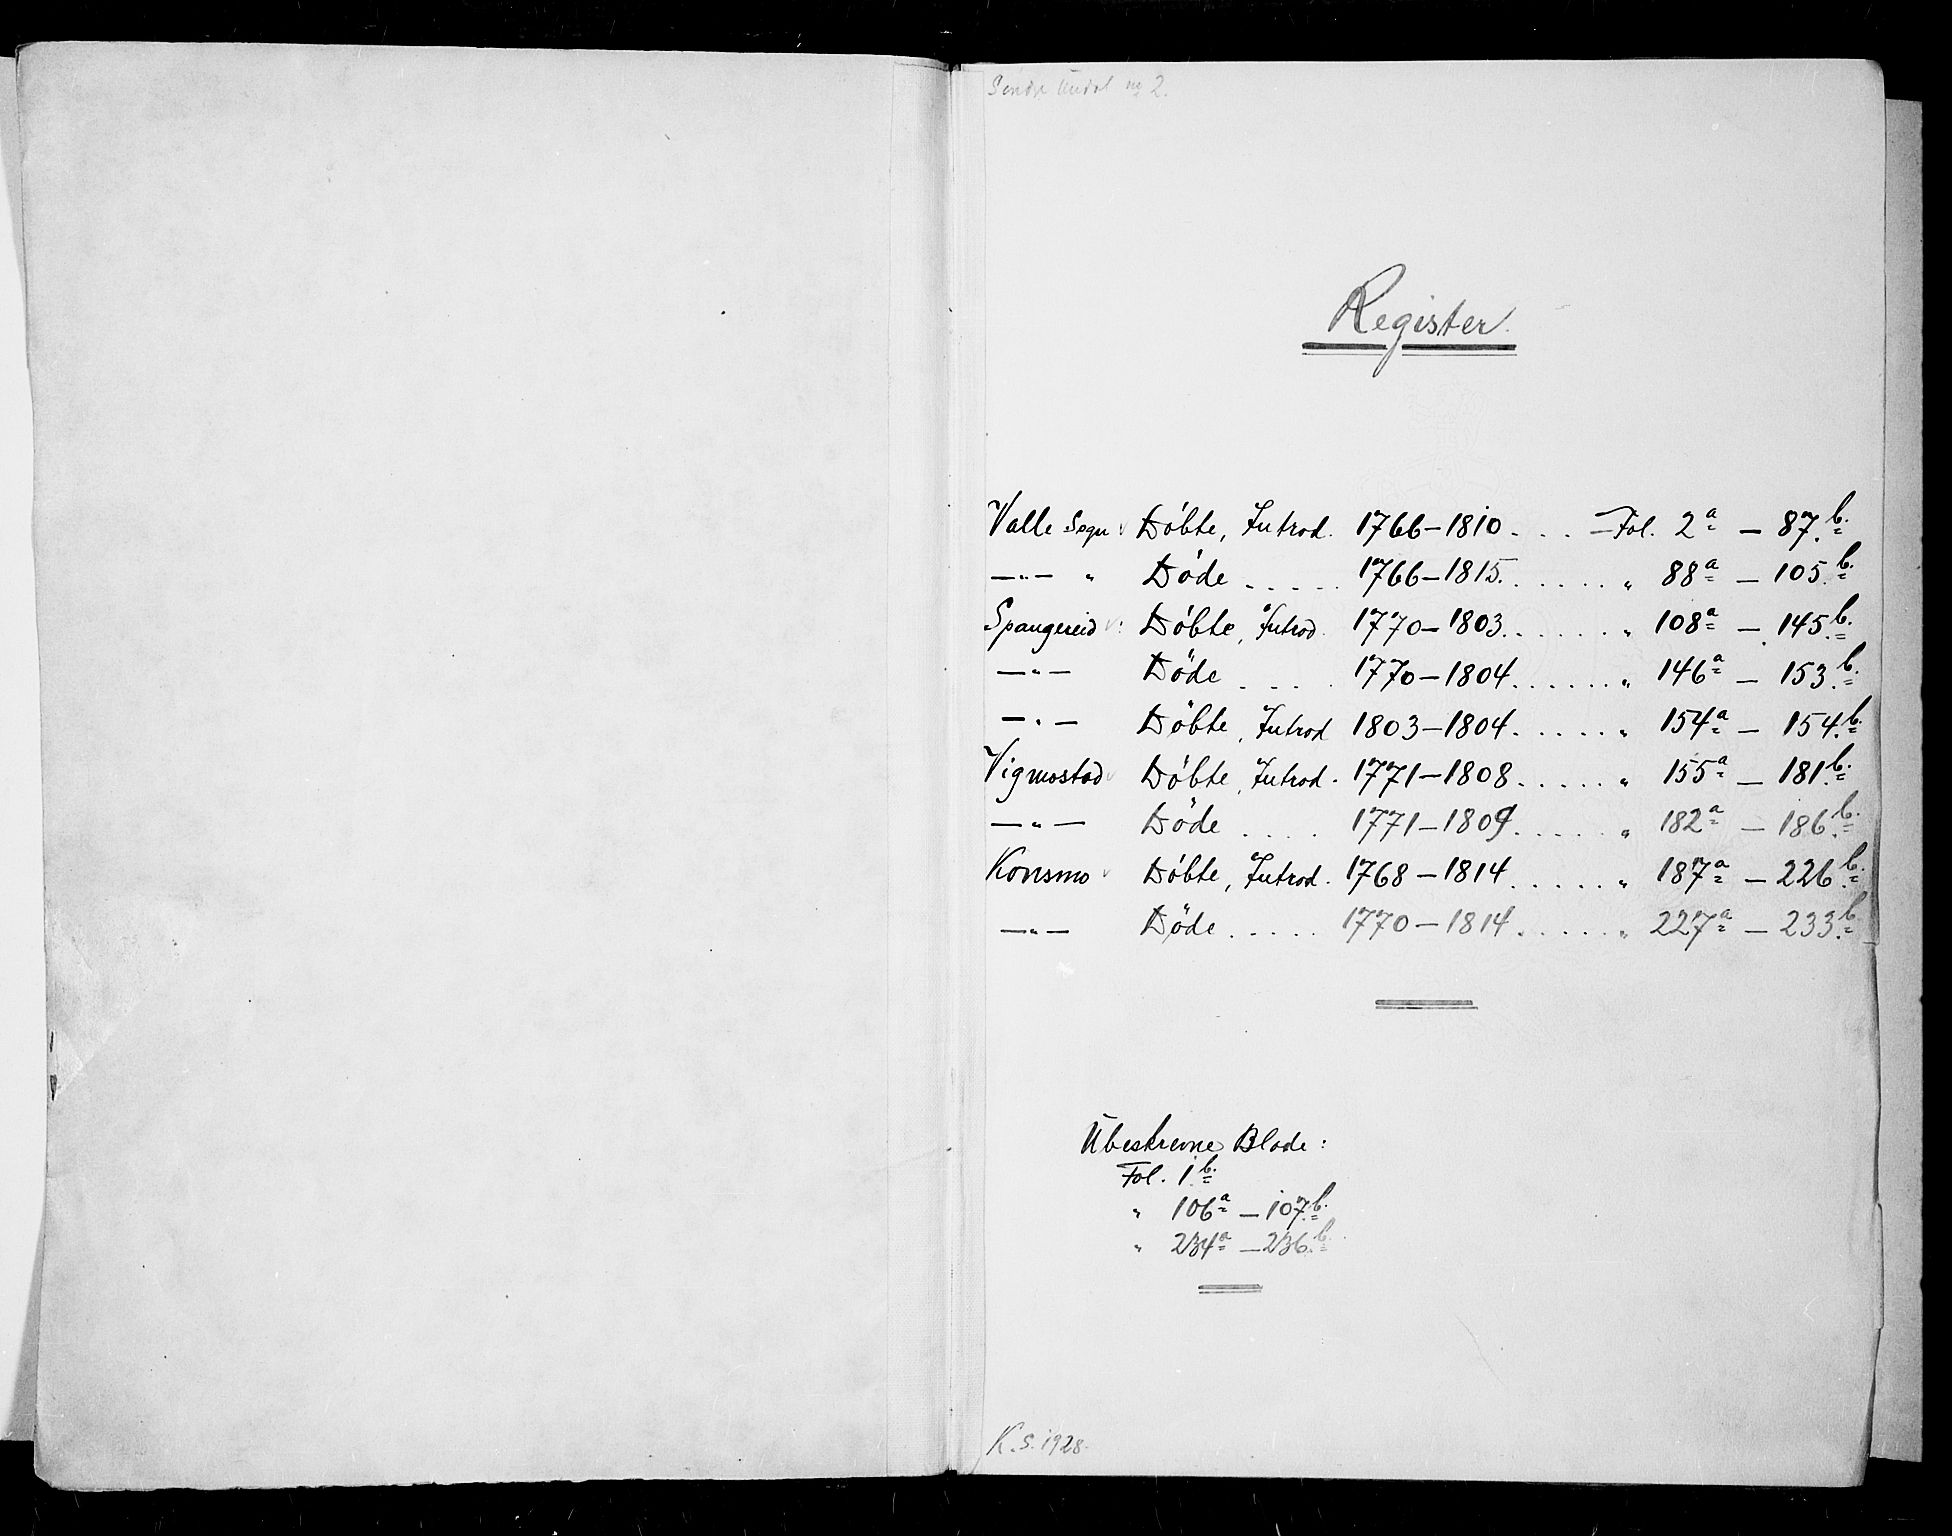 Søndre Undal no 2.
Register.
Valle Sogn Döbte, Introd. 1766–1810 . . . Fol. 2a – 87b.
—„— „ Döde . . . . . 1766–1815 . . . . . . „ 88a – 105b.
Spangereid : Döbte, Introd. 1770–1803 . . . . . . „ 108a – 145b.
—„— Döde . . . . 1770–1804 . . . . . . „ 146a – 153b.
—„— Döbte, Introd 1803–1804 . . . . . „ 154a – 154b.
Vigmostad Döbte, Introd. 1771–1808 . . . . . „ 155a – 181b.
—„— Döde . . . . 1771–1809 . . . . . „ 182a – 186b.
Konsmo Döbte, Introd. 1768–1814 . . . . . „ 187a – 226b.
—„— Döde . . . . . 1770–1814 . . . . . „ 227a – 233b.
Ubeskrevne Blade :
Fol. 1b.
„ 106a – 107b.
„ 234a – 236b.
K.S. 1928.